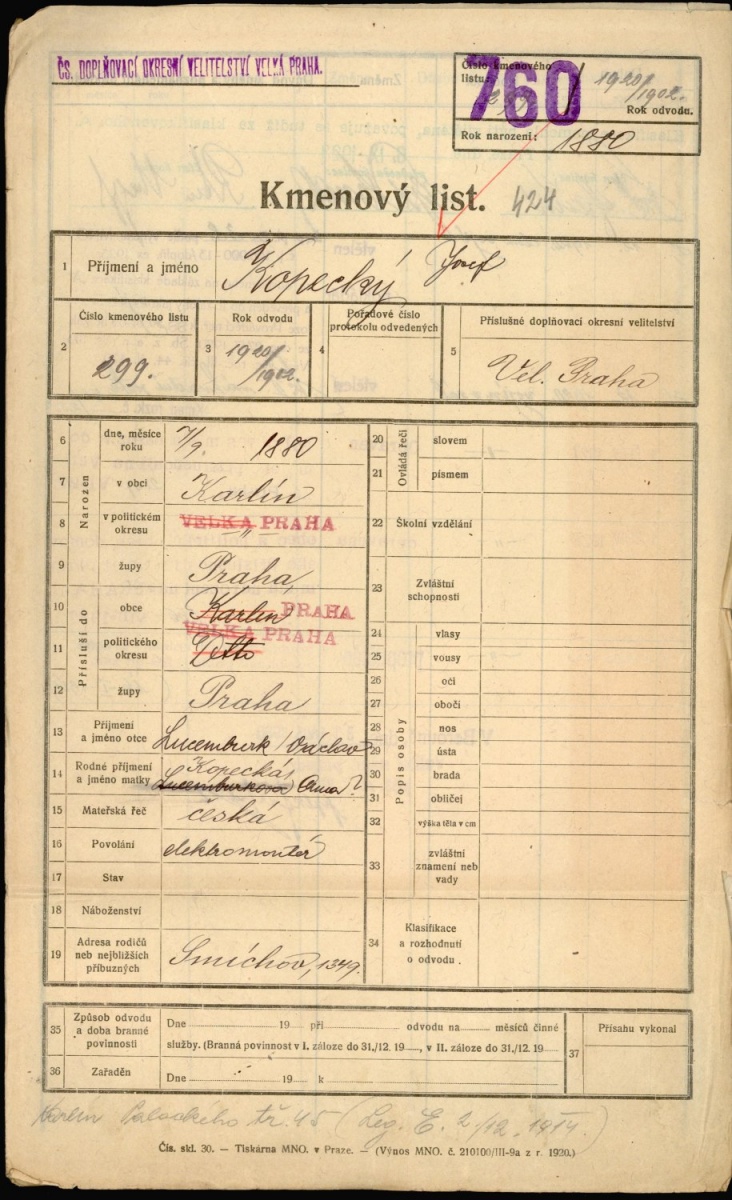 ČS. DOPLŇOVACÍ OKRESNÍ VELITELSTVÍ VELKÁ PRAHA.
Číslo kmenového listu:
760 / 1920/1902.
Rok odvodu.
Rok narození: 1880
Kmenový list. 424
1 Příjmení a jméno Kopecký Josef
2 Číslo kmenového listu 299.
3 Rok odvodu 1920/1902.
4 Pořadové číslo protokolu odvedených
5 Příslušné doplňovací okresní velitelství Vel. Praha
Narozen
6 dne, měsíce roku 7/9. 1880
7 v obci Karlín
8 v politickém okresu VELKÁ PRAHA "
9 župy Praha,
Přísluší do
10 obce Karlín PRAHA
11 politického okresu VELKÁ PRAHA Detto
12 župy Praha
13 Příjmení a jméno otce Lucemburk Václav
14 Rodné příjmení a jméno matky Kopecká Lucemburková Anna ?
15 Mateřská řeč česká
16 Povolání elektromontér
17 Stav
18 Náboženství
19 Adresa rodičů neb nejbližších příbuzných Smíchov, 1349.
Ovládá řeči
20 slovem
21 písmem
22 Školní vzdělání
23 Zvláštní schopnosti
Popis osoby
24 vlasy
25 vousy
26 oči
27 obočí
28 nos
29 ústa
30 brada
31 obličej
32 výška těla v cm
33 zvláštní znamení neb vady
34 Klasifikace a rozhodnutí o odvodu
35 Způsob odvodu a doba branné povinnosti
Dne 19 při odvodu na měsíců činné
služby. (Branná povinnost v I. záloze do 31./12. 19 , v II. záloze do 31./12. 19
36 Zařaděn Dne 19 k
37 Přísahu vykonal
Karlín Palackého tř. 45 (Leg. E. 2/12. 1914.)
Čís. skl. 30. — Tiskárna MNO. v Praze. — (Výnos MNO. č. 210100/III-9a z r. 1920.)